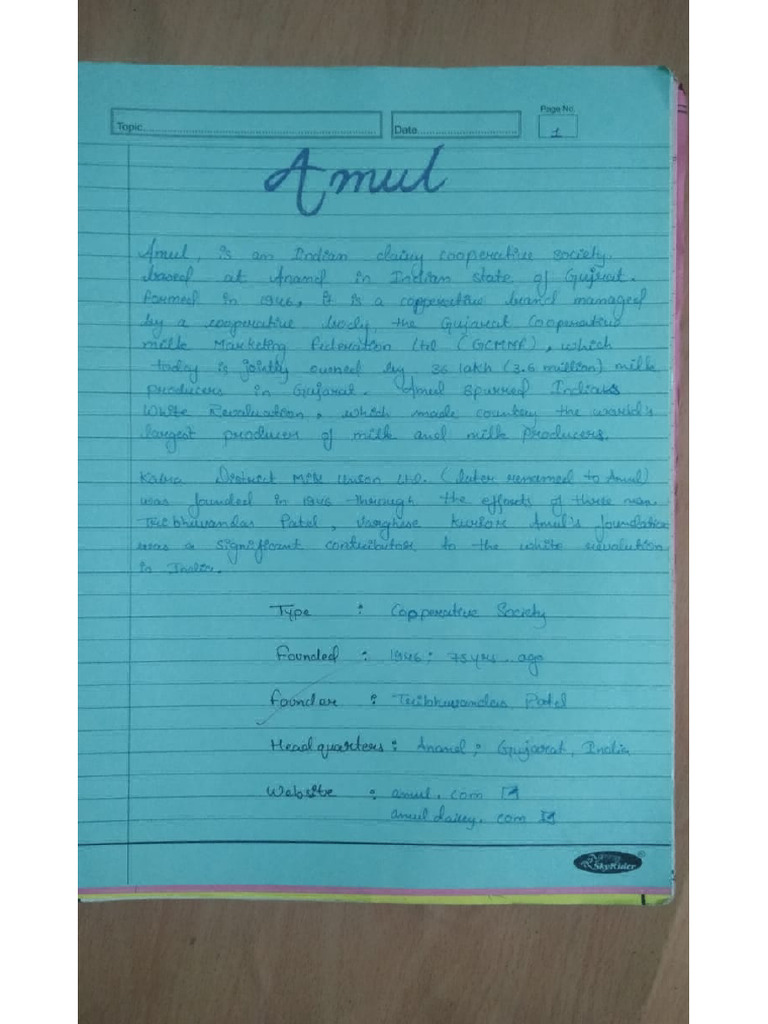 Page No.
Topic
Date
1
Amul
Amul, is an Indian dairy cooperative society.
based at Anand in Indian state of Gujrat.
formed in 1946, it is a copperative brand managed
by a cooperative body, the Gujarat Cooperative
milk Marketing Federation Ltd (GCMMF), which
today is jointly owned by 36 lakh (3.6 million) milk
producers in Gujarat. Amul spurred India's
White Revaluation, which made country the world's
largest producer of milk and milk producers.
Kaira District Milk Union Ltd. (later renamed to Amul)
was founded in 1946 through the efforts of three men.
Tribhuwandas Patel, Varghise Kurion Amul's foundation
was a significant contributor to the white revalution
in India.
Type : Copperative Society
Founded : 1946; 75 yrs. ago
Foundar : Tribhuwandas Patel
Headquarters : Anand; Gujarat, India
Website : amul.com
amuldairy.com
SkyRider